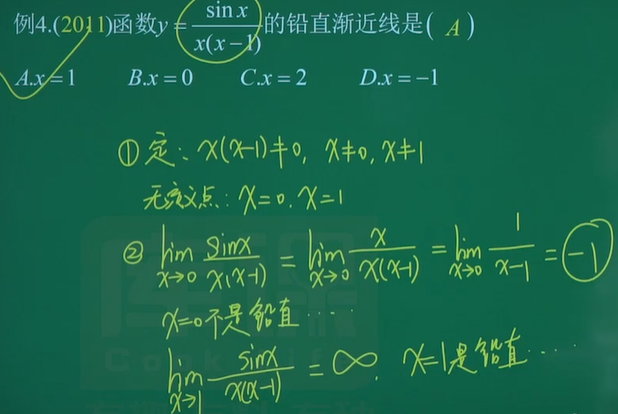 例4.(2011)函数y = sin x / x(x−1) 的铅直渐近线是( A )
A.x=1 B.x=0 C.x=2 D.x=−1
①定: x(x-1)≠0, x≠0, x≠1
无定义点: x=0. x=1
② lim x→0 sinx / x(x-1) = lim x→0 x / x(x-1) = lim x→0 1 / x-1 = -1
x=0不是铅直····
lim x→1 sinx / x(x-1) = ∞. x=1是铅直····